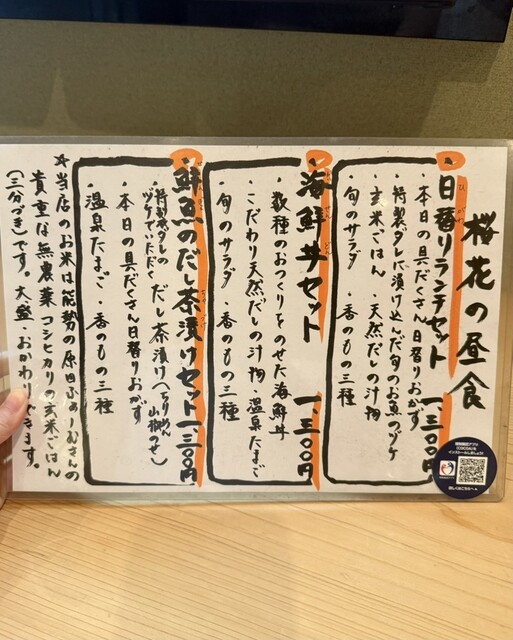 桜花の昼食
日替りランチセット 一、三〇〇円
・本日の具だくさん日替りおかず
・特製ダレに漬け込んだ旬のお魚のヅケ
・玄米ごはん ・天然だしの汁物
・旬のサラダ ・香のもの三種
海鮮丼セット 一、三〇〇円
・数種のおつくりをのせた海鮮丼
・こだわり天然だしの汁物 ・温泉たまご
・旬のサラダ ・香のもの三種
鮮魚のだし茶漬けセット 一、三〇〇円
・特製ダレの
ヅケでいただく だし茶漬け(ちりめん山椒のせ)
・本日の具だくさん日替りおかず
・温泉たまご ・香のもの三種
☆当店のお米は能勢の原田ふぁーむさんの
貴重な無農薬コシヒカリの玄米ごはん
(三分づき)です。大盛・おかわりできます。